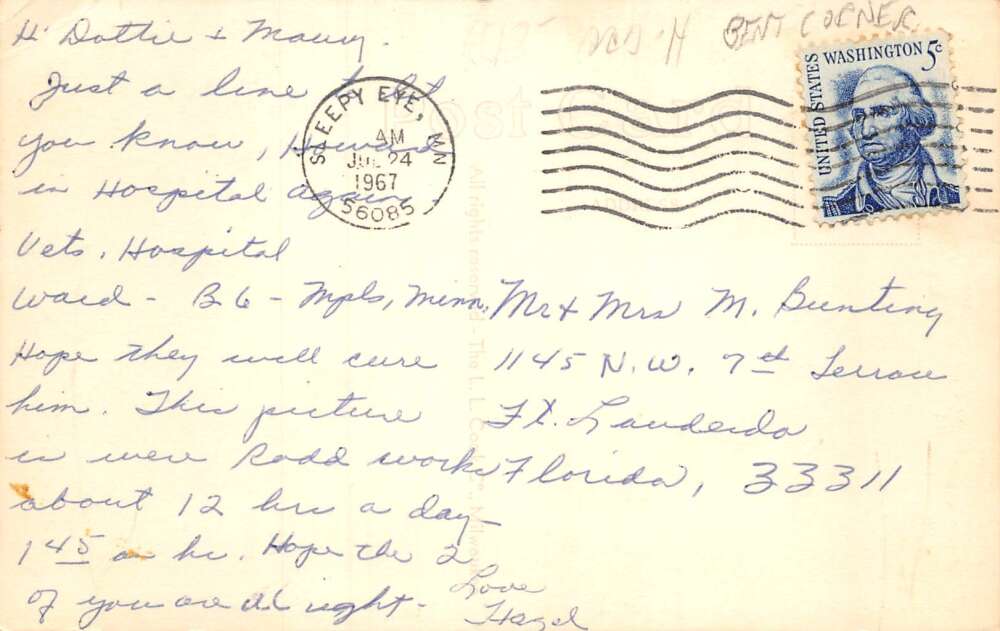 BENT CORNER
Hi Dottie + Maury.
Just a line to let
you know, Howard
in Hospital again
Vets. Hospital
Ward - B6 - Mpls, Minn.
Hope they will cure
him. This picture
is were Rodd works
about 12 hrs a day -
1 45 an hr. Hope the 2
of you are all right -
Love
Hazel
SLEEPY EYE, MN
AM
JUL 24
1967
56085
UNITED STATES
WASHINGTON 5c
Post Card
ADDRESS
Mr + Mrs M. Bunting
1145 N.W. 7th Terrace
Ft. Lauderda
Florida, 33311